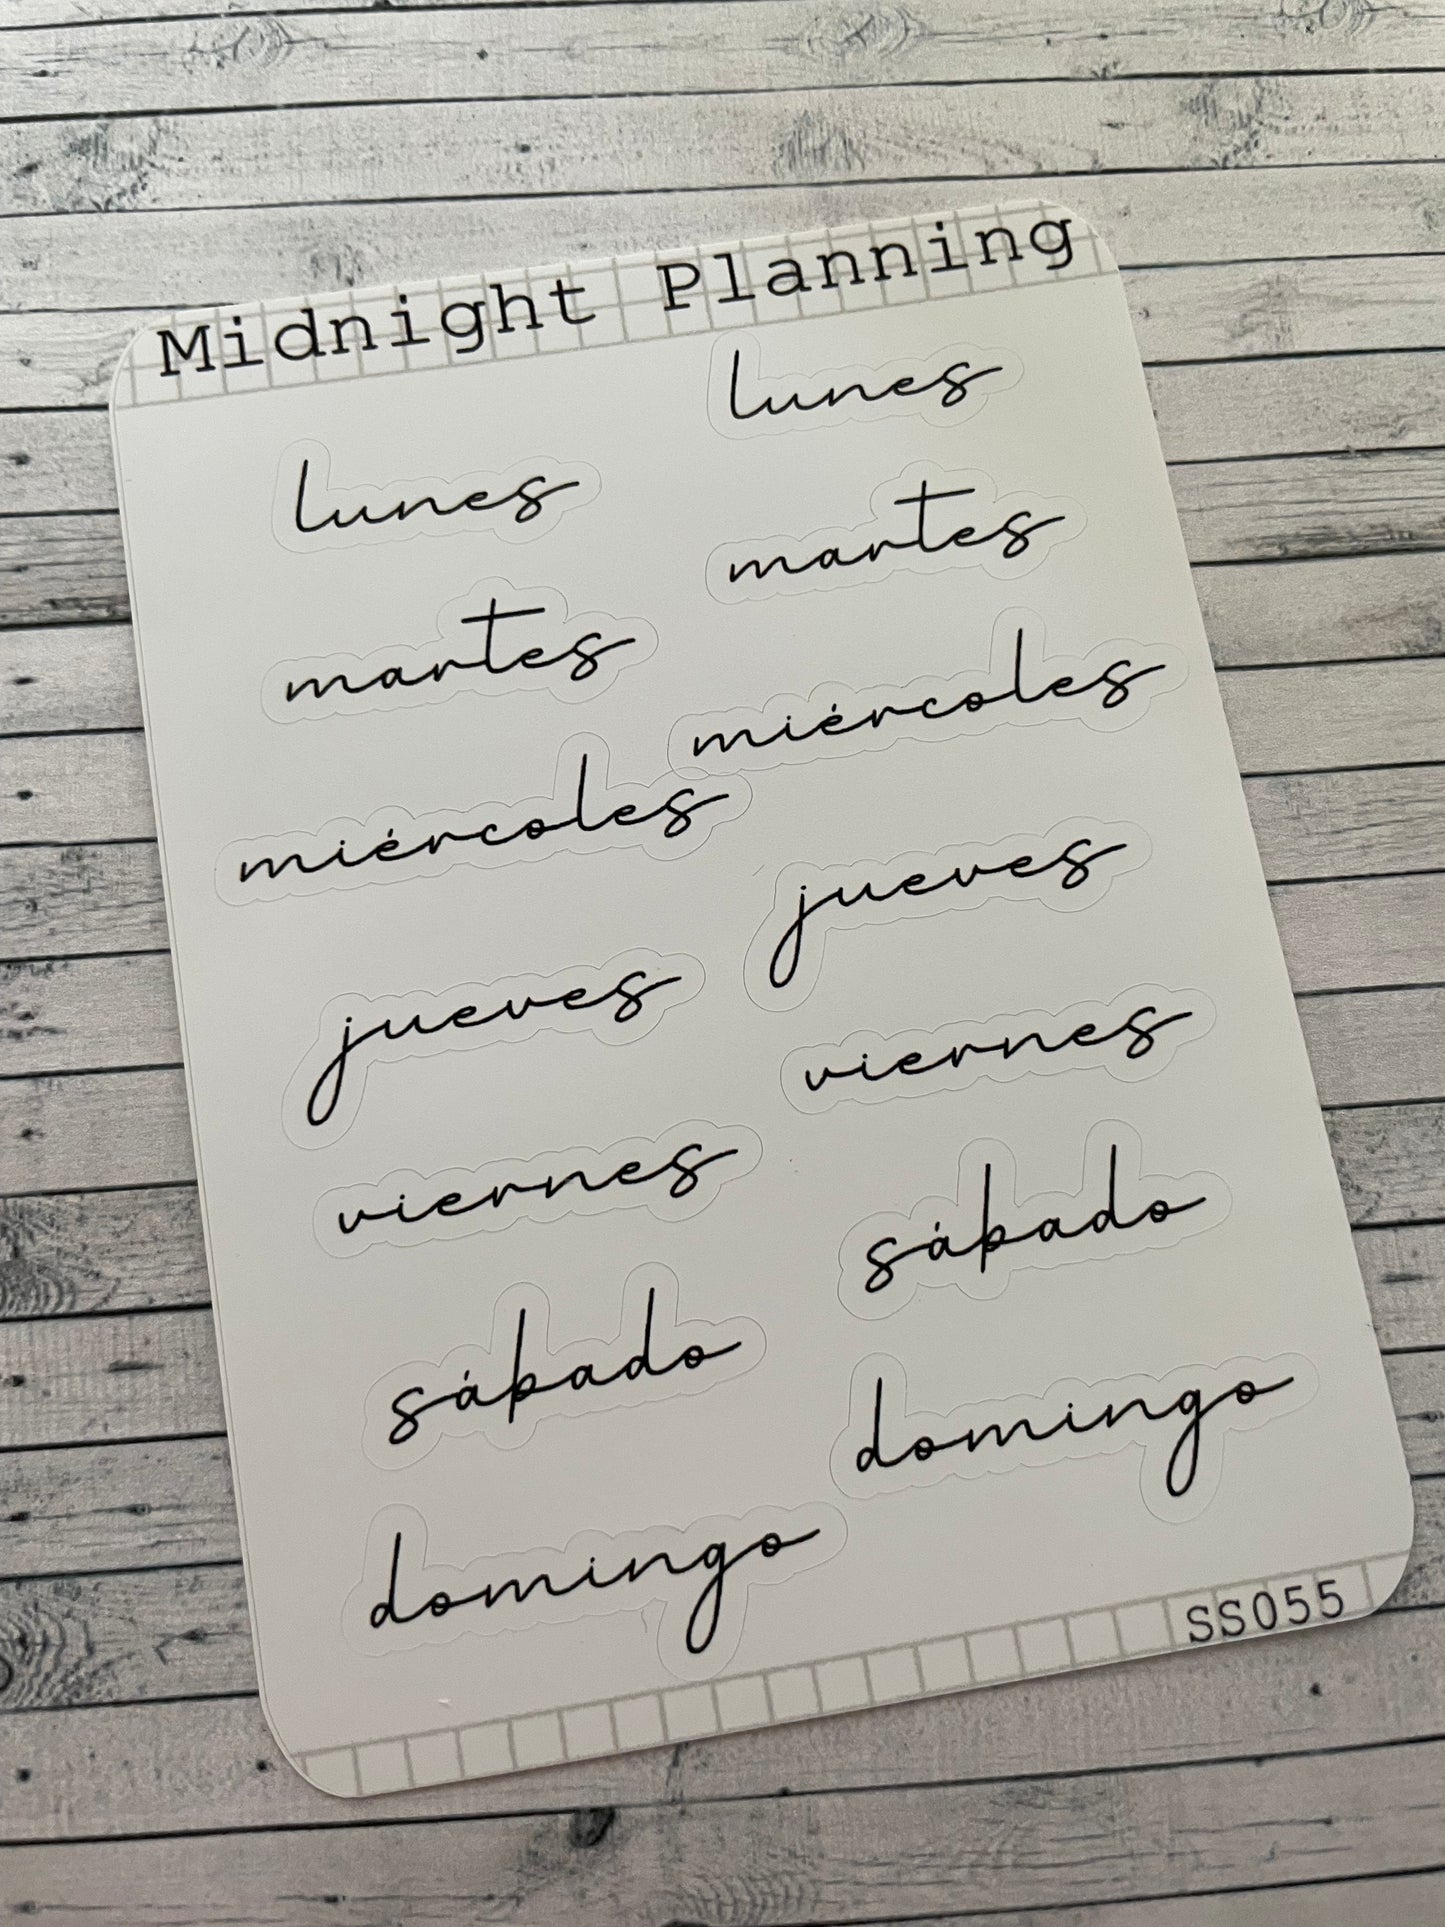 Midnight Planning
lunes
lunes
martes
martes
miércoles
miércoles
jueves
jueves
viernes
viernes
sábado
sábado
domingo
domingo
SS055